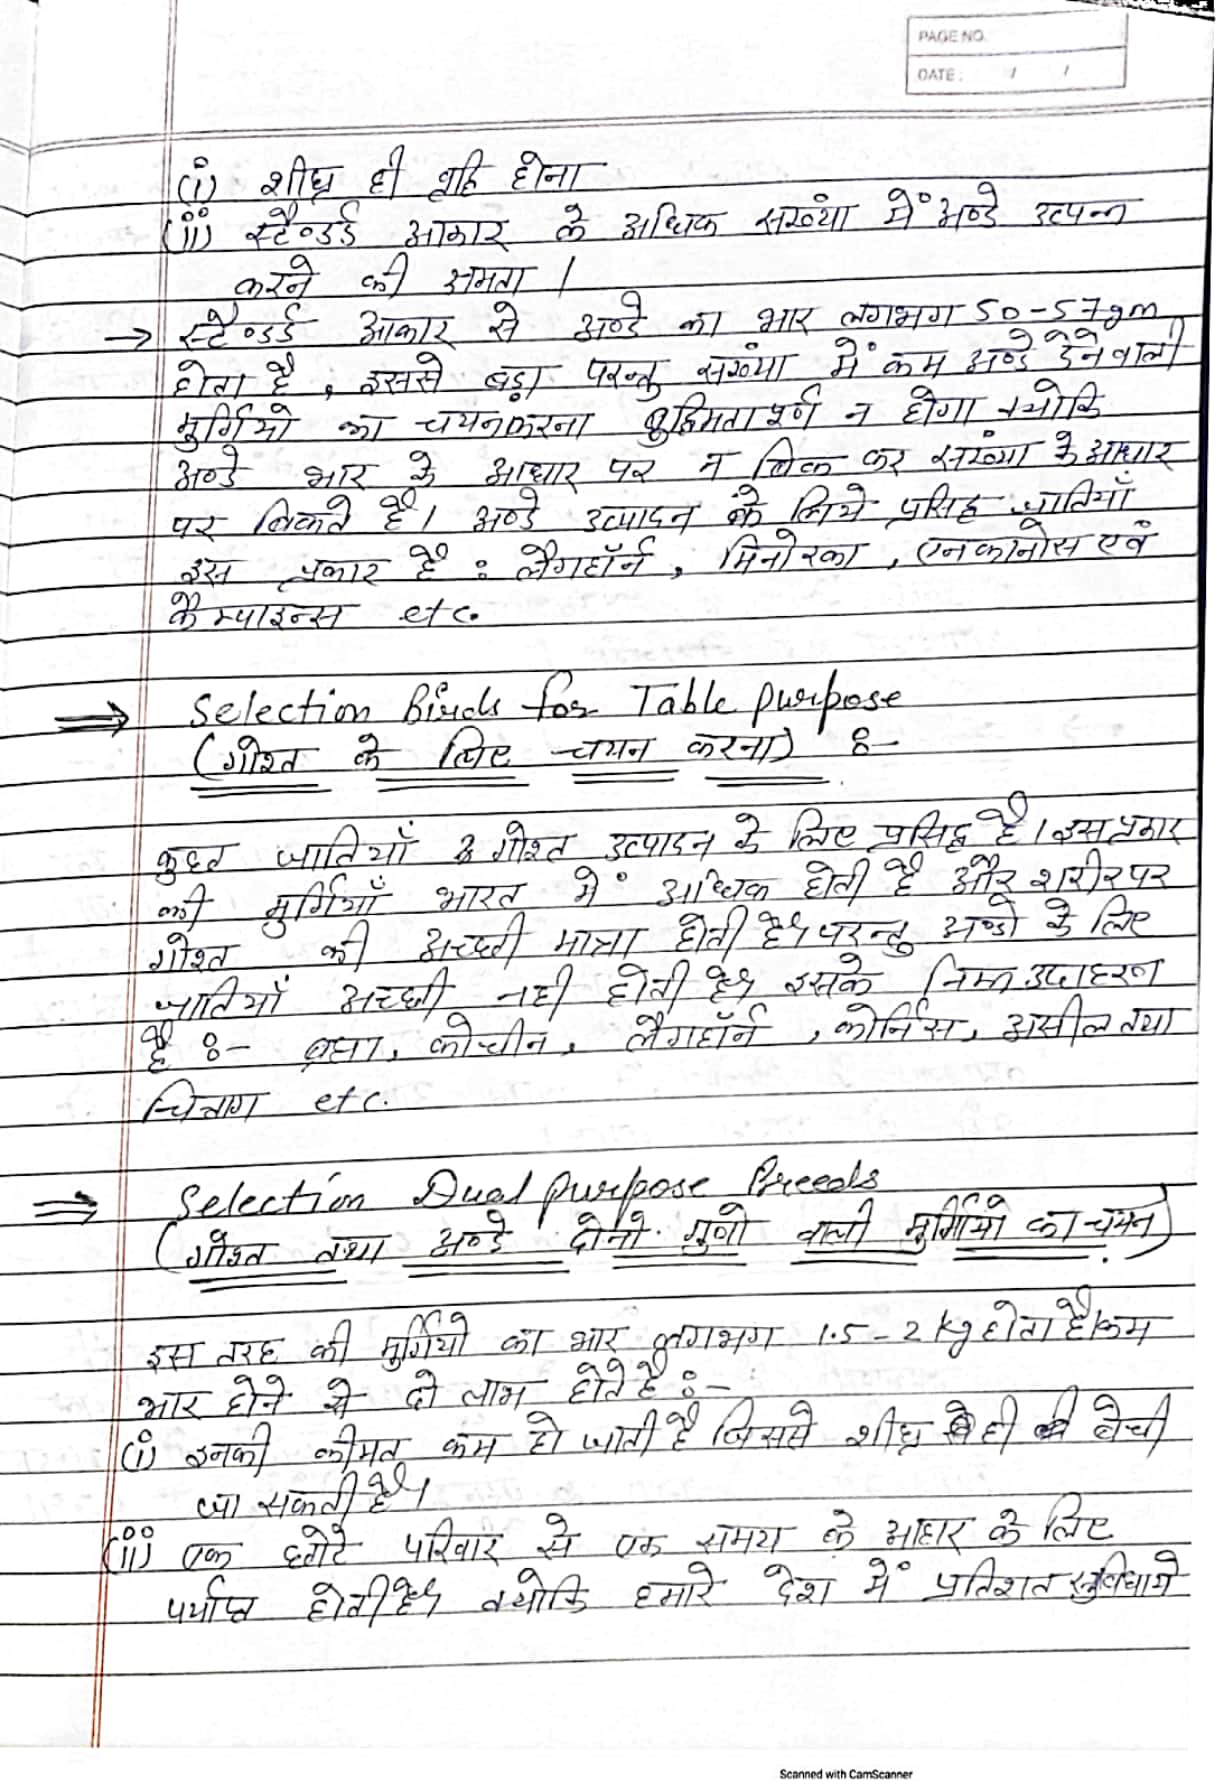 PAGE NO.
DATE: / /
(i) शीघ्र ही वृद्धि होना
(ii) स्टैण्डर्ड आकार के अधिक संख्या में अण्डे उत्पन्न
करने की क्षमता ।
→ स्टैण्डर्ड आकार से अण्डे का भार लगभग 50-57gm
होता है, इससे बड़ा परन्तु संख्या में कम अण्डे देने वाली
मुर्गियो का चयन करना बुद्धिमतापूर्ण न होगा क्योकि
अण्डे भार के आधार पर न बिक कर संख्या के आधार
पर बिकते है। अण्डे उत्पादन के लिये प्रसिद्ध जातियाँ
इस प्रकार है : लैगहॉर्न, मिनोरका, एनकानोस एवं
कैम्पाइन्स etc.
⇒ Selection Birds for Table purpose
(गोश्त के लिए चयन करना) :-
कुछ जातियाँ गोश्त उत्पादन के लिए प्रसिद्ध है। इस प्रकार
की मुर्गियाँ भारत में अधिक होती है और शरीर पर
गोश्त की अच्छी मात्रा होती है। परन्तु अण्डो के लिए
जातियाँ अच्छी नही होती है। इसके निम्न उदाहरण
है :- ब्रह्मा, कोचीन, लैगहॉर्न, कोर्निस, असील तथा
etc.
⇒ Selection Dual purpose Breeds
(गोश्त तथा अण्डे दोनो गुणो वाली मुर्गियो का चयन)
इस तरह की मुर्गियो का भार लगभग 1.5-2 kg होता है। कम
भार होने से दो लाभ होते है :-
(i) इनकी कीमत कम हो जाती है जिससे शीघ्र ही बेची
जा सकती है।
(ii) एक छोटे परिवार से एक समय के आहार के लिए
पर्याप्त होती है। क्योकि हमारे देश में प्रतिशत सुविधाये
Scanned with CamScanner